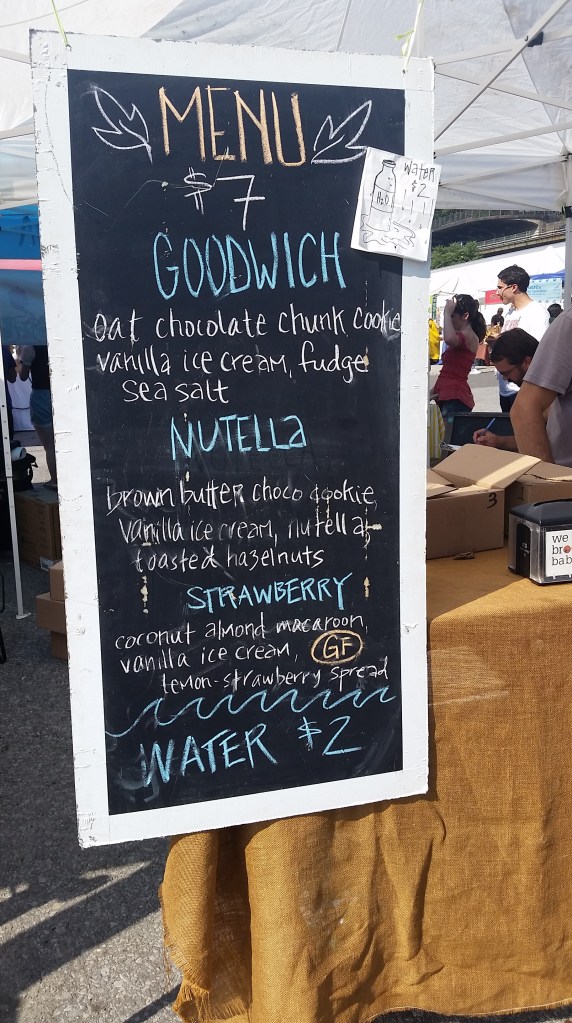 MENU
$7
WATER
$2
H2O
GOODWICH
oat chocolate chunk cookie
vanilla ice cream, fudge
sea salt
NUTELLA
brown butter choco cookie,
vanilla ice cream, nutella,
toasted hazelnuts
STRAWBERRY
coconut almond macaroon,
vanilla ice cream, GF
lemon-strawberry spread
WATER $2
3
we
bro
bab